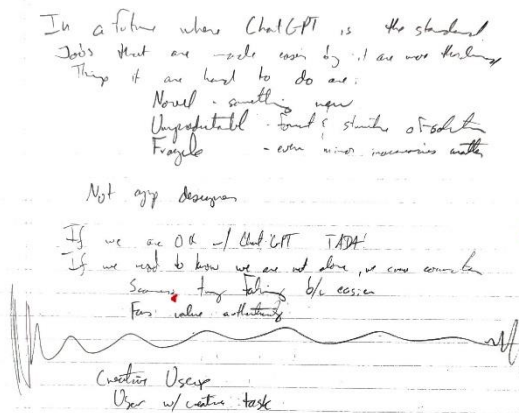 In a future where ChatGPT is the standard
Jobs that are made easier by it are more
Things it are hard to do are:
Novel - something new
Unpredictable - format & structure of solution
Fragile - even minor inaccuracies matter
Not app designer
If we are OK w/ ChatGPT TADA!
If we need to know we are not alone, we
try faking b/c easier
Fans value authenticity
Creative Usecase
User w/ creative task